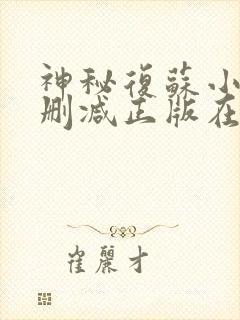 神秘復蘇小
删减正版在
崔麗才